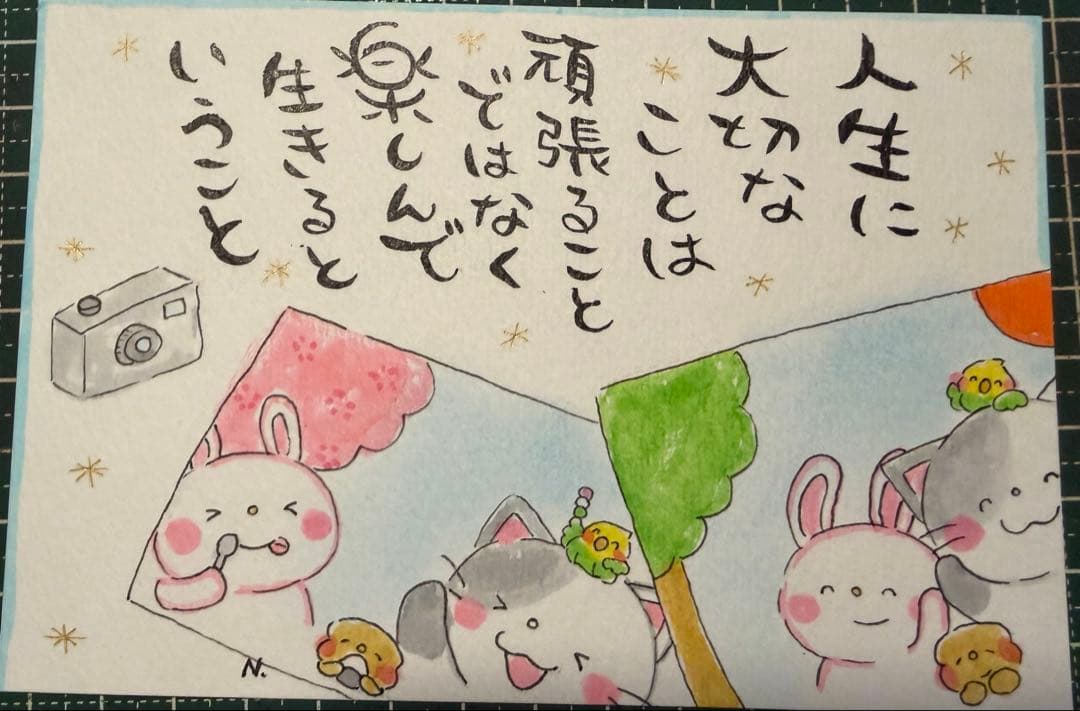 人生に
大切な
ことは
頑張ること
ではなく
楽しんで
生きると
いうこと
N.